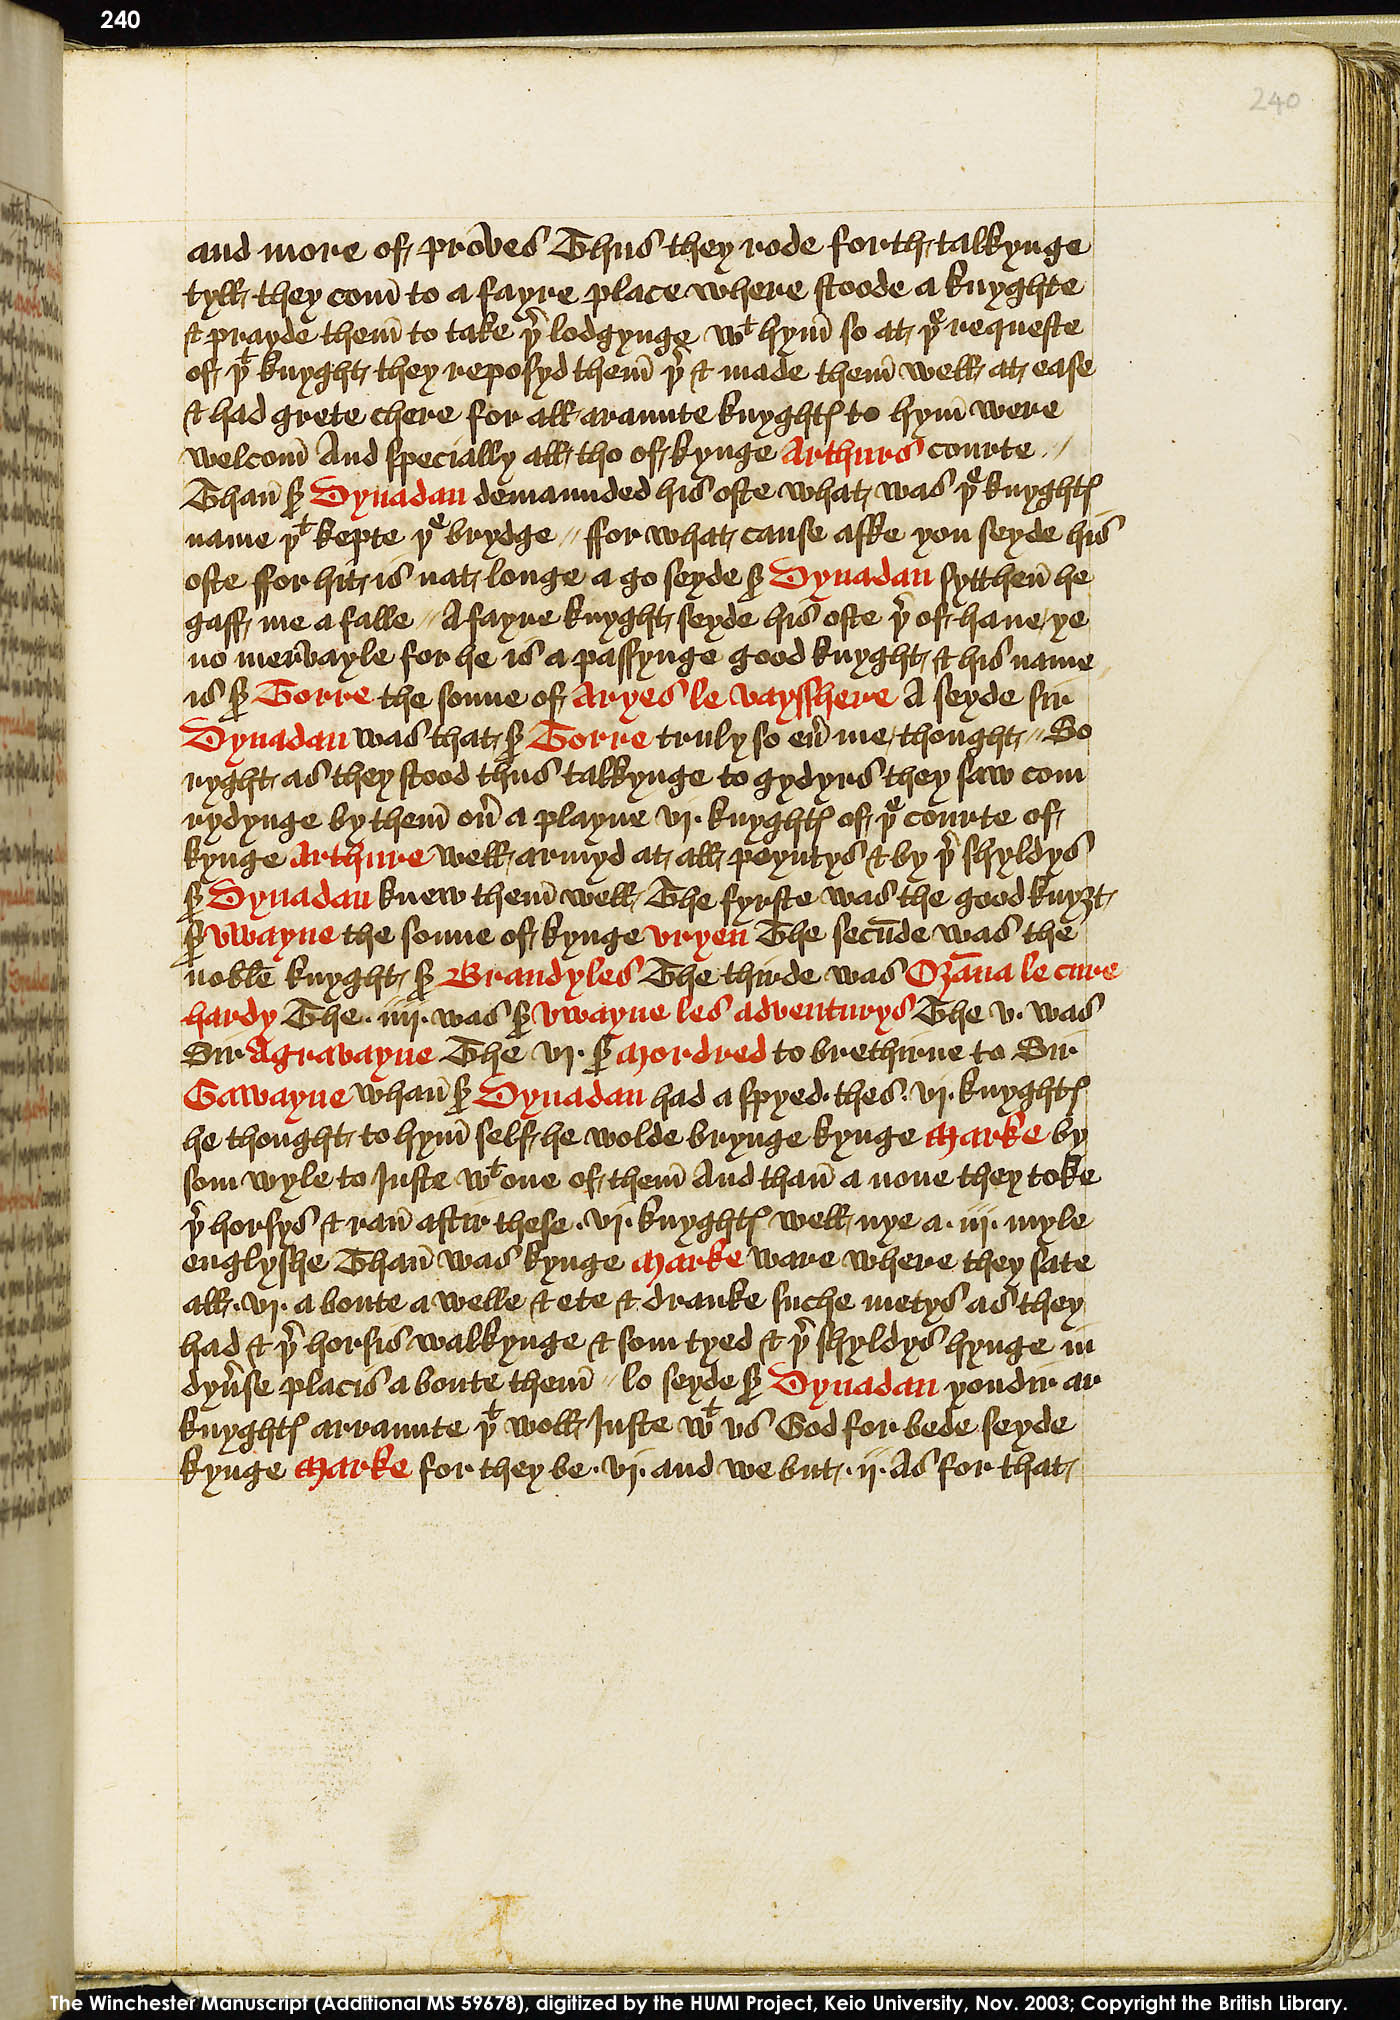 240
240
and more of proves Thus they rode forth talkynge
tyll they com̄ to a fayre place where stoode a knyghte
& prayde them̄ to take þʳ lodgynge wᵗ hym̄ so at þᵉ requeste
of þᵗ knyght they reposyd them̄ þʳ & made them̄ well at ease
& had grete chere for all araunte knyghtꝭ to hym̄ were
welcom̄ And specially all tho of kynge Arthurs courte //
Than̄ sʳ Dynadan demaunded his oste what was þᵉ knyghtꝭ
name þᵗ kepte þᵉ brydge // ffor what cause aske you seyde his
oste ffor hit is nat longe a go seyde sʳ Dynadan sytthen̄ he
gaff me a falle // A fayre knyght seyde his oste þʳ of haue ye
no mervayle for he is a passynge good knyght & his name
is sʳ Torre the sonne of Aryes le vayshere A seyde sir
Dynadan was that sʳ Torre truly so eu̾ me thought // So
ryght as they stood thus talkynge to gydyrs they saw com
rydynge by them̄ ou̾ a playne vj. knyghtꝭ of þᵉ courte of
kynge Arthure well armyd at all poyntys & by þʳ shyldys
sʳ Dynadan knew them̄ well The fyrste was the good knyȝt
sʳ Vwayne the sonne of kynge Vryen The secūde was the
noble knyght sʳ Brandyles The thirde was Oȝāna le cure
hardy The .iiij. was sʳ Vwayne les adventurys The v. was
Sir Agravayne The vj. sʳ Mordred to brethirne to Sir
Gawayne whan̄ sʳ Dynadan had a spyed. thes. vj. knyghtꝭ
he thought to hym̄ self he wolde brynge kynge Marke by
som wyle to Juste wᵗ one of them̄ And than̄ a none they toke
þʳ horsys & ran̄ aftir these .vj. knyghtꝭ well nye a .iij. myle
englyshe Than̄ was kynge Marke ware where they sate
all .vj. a boute a welle & ete & dranke suche metys as they
had & þʳ horsis walkynge & som tyed & þʳ shyldys hynge in
dyu̾se placis a boute them̄ // lo seyde sʳ Dynadan yondir ar
knyghtꝭ arraunte þᵗ woll Juste wᵗ vs God for bede seyde
kynge Marke for they be .vj. and we but .ij. As for that
The Winchester Manuscript (Additional MS 59678), digitized by the HUMI Project, Keio University, Nov. 2003; Copyright the British Library.